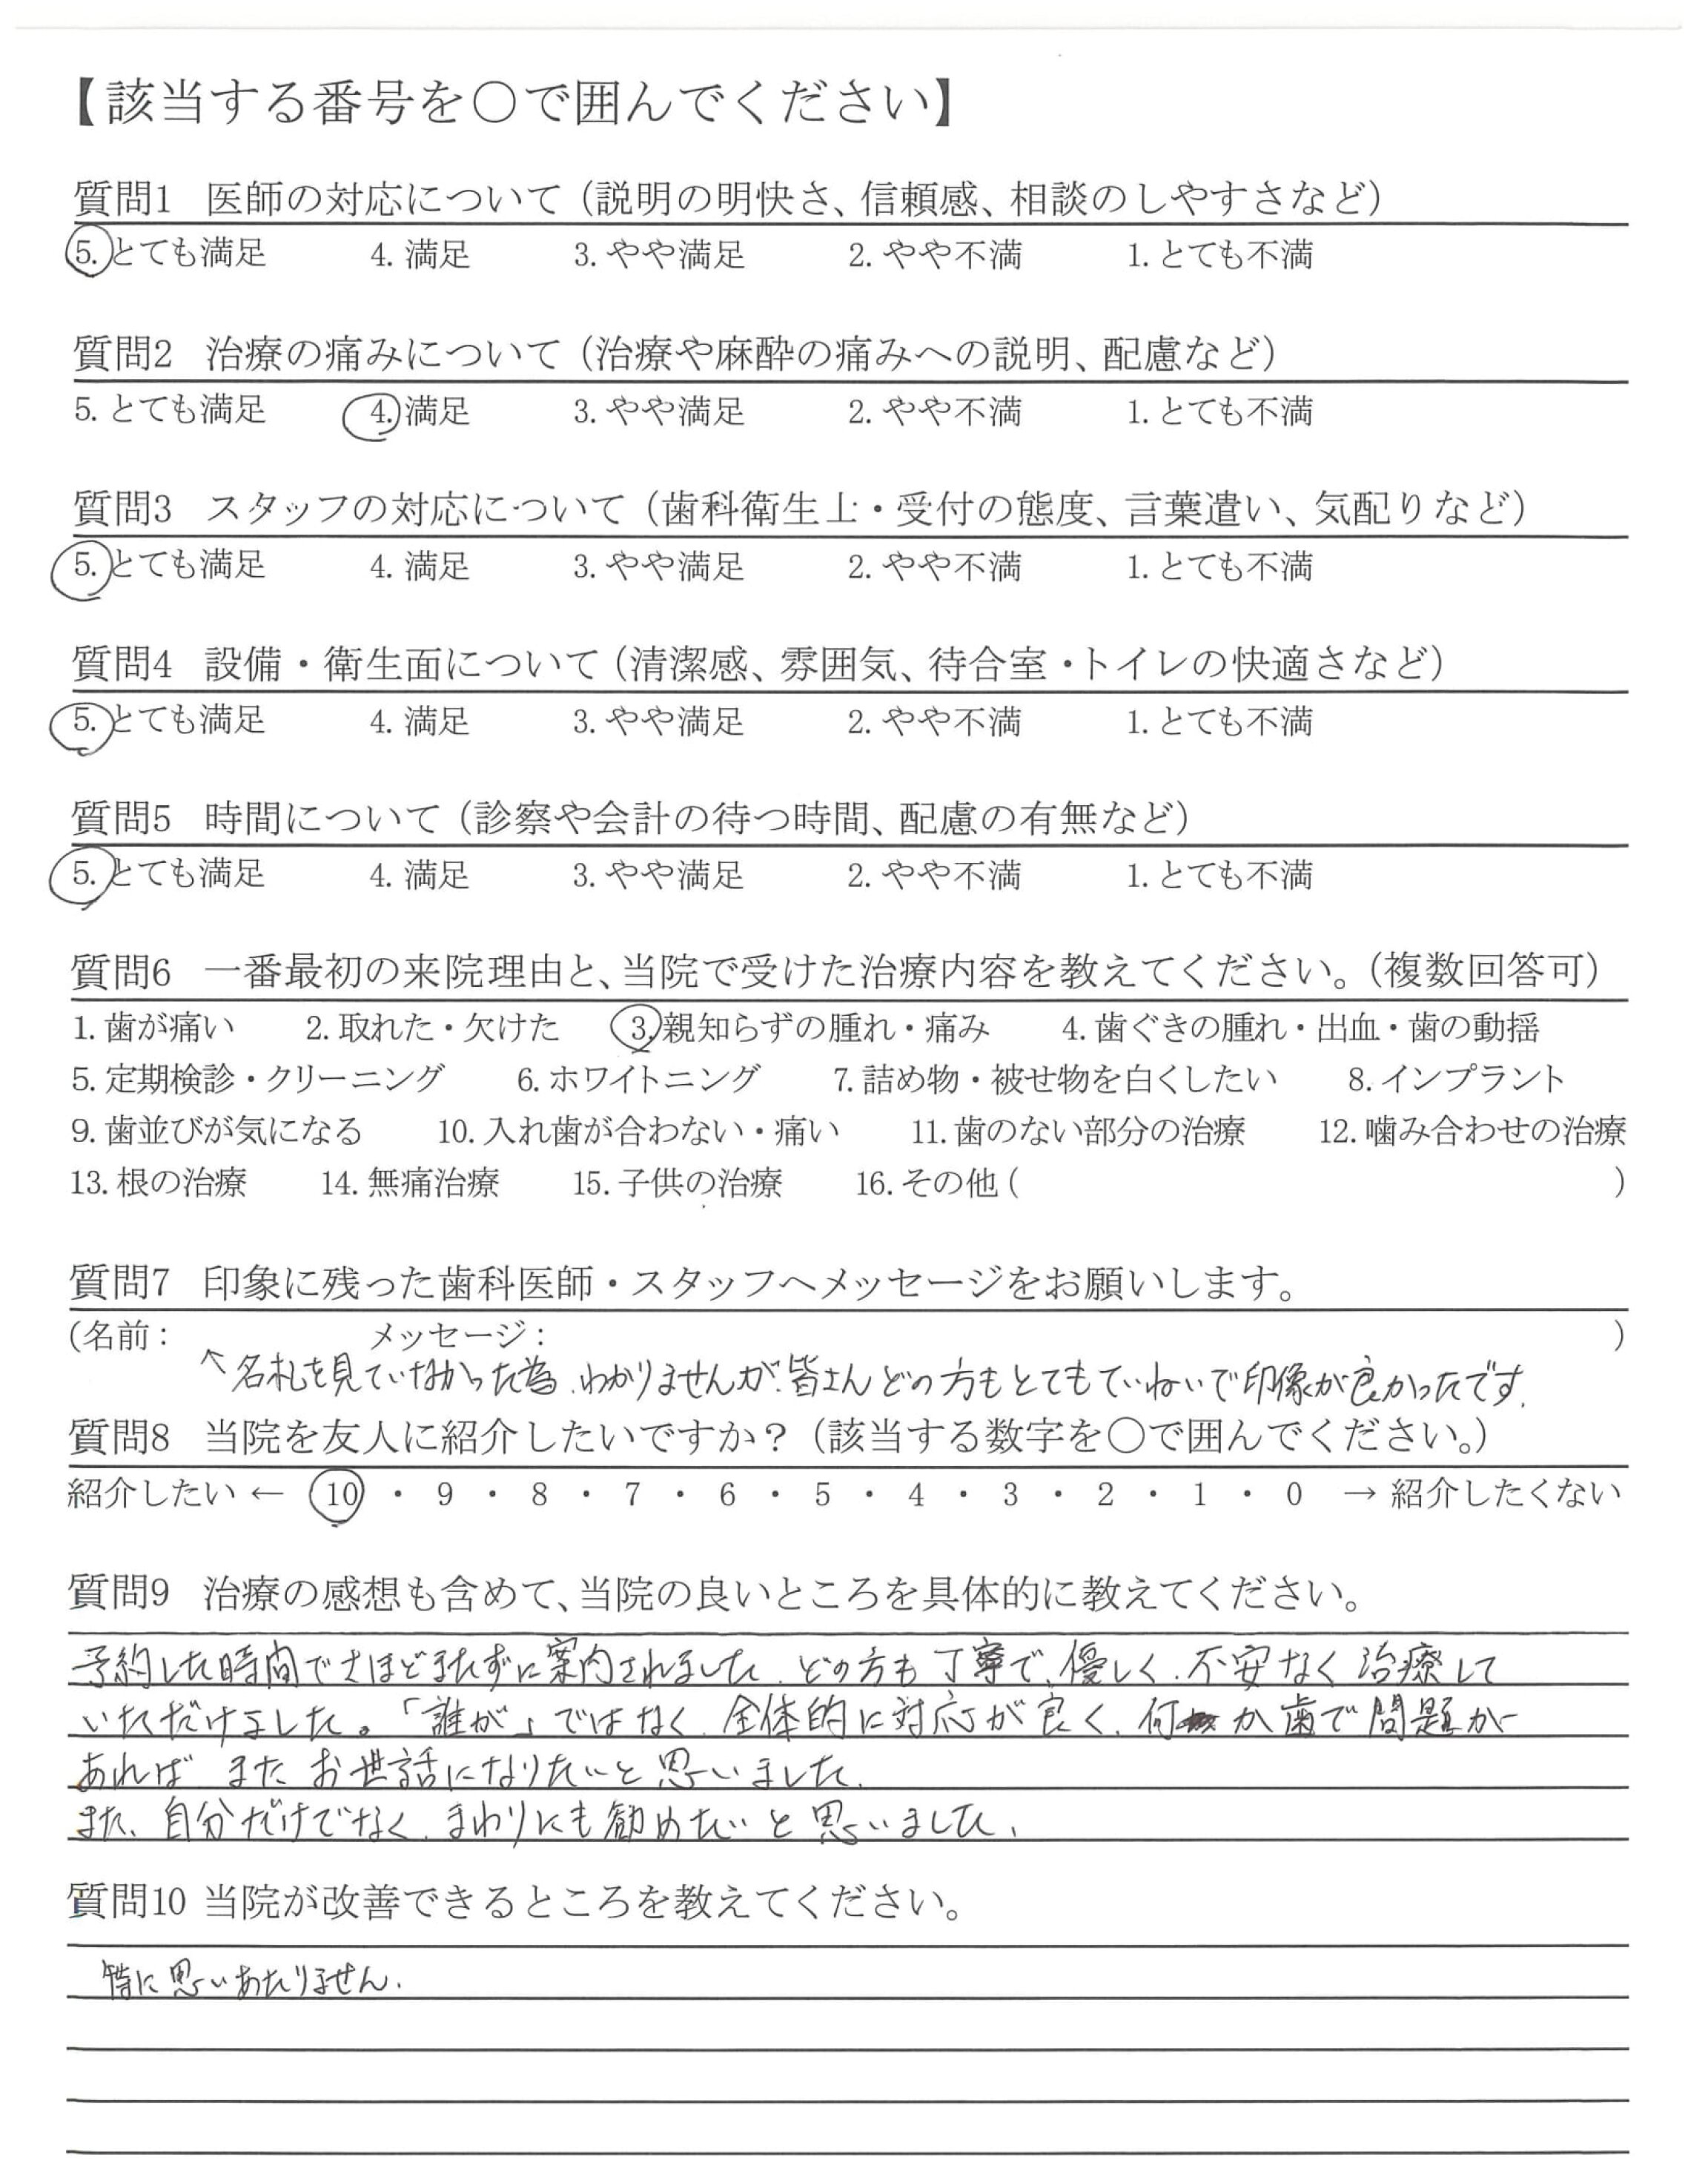 【該当する番号を〇で囲んでください】
質問1 医師の対応について（説明の明快さ、信頼感、相談のしやすさなど）
5. とても満足 4. 満足 3. やや満足 2. やや不満 1. とても不満
質問2 治療の痛みについて（治療や麻酔の痛みへの説明、配慮など）
5. とても満足 4. 満足 3. やや満足 2. やや不満 1. とても不満
質問3 スタッフの対応について（歯科衛生士・受付の態度、言葉遣い、気配りなど）
5. とても満足 4. 満足 3. やや満足 2. やや不満 1. とても不満
質問4 設備・衛生面について（清潔感、雰囲気、待合室・トイレの快適さなど）
5. とても満足 4. 満足 3. やや満足 2. やや不満 1. とても不満
質問5 時間について（診察や会計の待つ時間、配慮の有無など）
5. とても満足 4. 満足 3. やや満足 2. やや不満 1. とても不満
質問6 一番最初の来院理由と、当院で受けた治療内容を教えてください。（複数回答可）
1. 歯が痛い 2. 取れた・欠けた 3. 親知らずの腫れ・痛み 4. 歯ぐきの腫れ・出血・歯の動揺
5. 定期検診・クリーニング 6. ホワイトニング 7. 詰め物・被せ物を白くしたい 8. インプラント
9. 歯並びが気になる 10. 入れ歯が合わない・痛い 11. 歯のない部分の治療 12. 噛み合わせの治療
13. 根の治療 14. 無痛治療 15. 子供の治療 16. その他 ( )
質問7 印象に残った歯科医師・スタッフへメッセージをお願いします。
（名前： メッセージ： ）
↑名札を見ていなかった為、わかりませんが、皆さんどの方もとてもていねいで印像が良かったです.
質問8 当院を友人に紹介したいですか？（該当する数字を〇で囲んでください。）
紹介したい ← 10 ・ 9 ・ 8 ・ 7 ・ 6 ・ 5 ・ 4 ・ 3 ・ 2 ・ 1 ・ 0 → 紹介したくない
質問9 治療の感想も含めて、当院の良いところを具体的に教えてください。
予約した時間でさほどまたずに案内されました. どの方も丁寧で、優しく、不安なく治療して
いただけました。「誰が」ではなく、全体的に対応が良く、何か歯で問題が
あれば またお世話になりたいと思いました.
また、自分だけでなく、まわりにも勧めたいと思いました.
質問10 当院が改善できるところを教えてください。
特に思いあたりません.